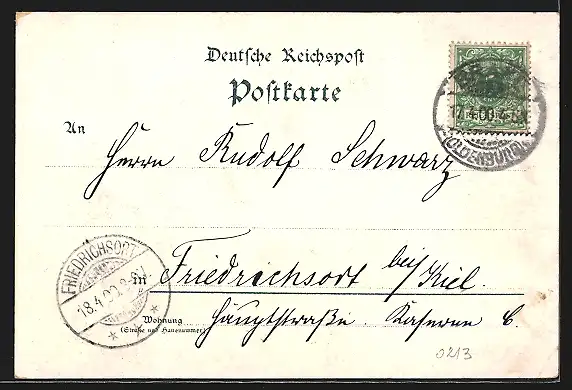 Deutsche Reichspost
Postkarte
An
Herrn Rudolf Schwarz
in Friedrichsort bei/Kiel.
Wohnung
(Straße und Hausnummer)
Hauptstraße. Kaserne C.
FRIEDRICHSORT
18.4.00
17.4.00
OLDENBURG
0213